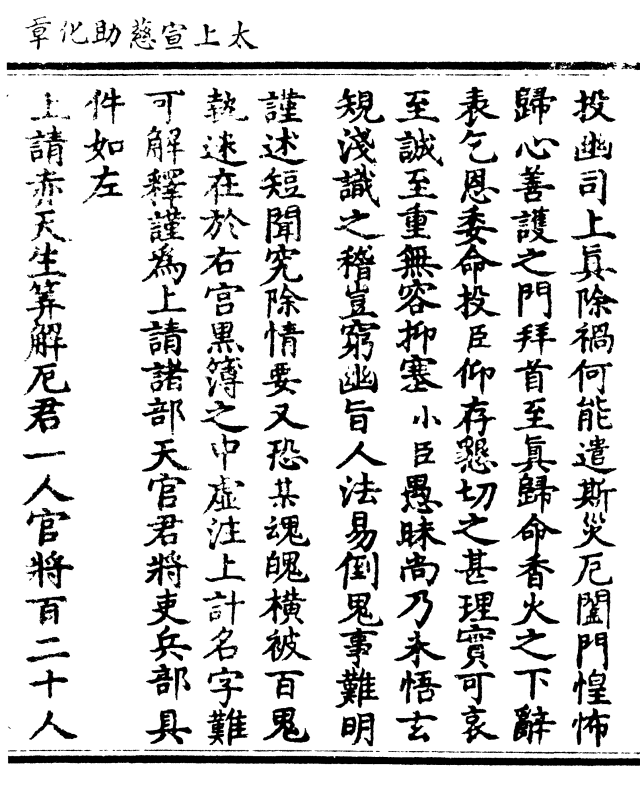 太上宣慈助化章
投幽司上真除禍何能遣斯災厄闔門惶怖
歸心善護之門拜首至真歸命香火之下辭
表乞恩委命投臣仰存懇切之甚理實可哀
至誠至重無容抑塞小臣愚昧尚乃未悟玄
規淺識之稽豈窮幽旨人法易倒鬼事難明
謹述短聞究除情要又恐某魂魄橫被百鬼
執迷在於右宮黑簿之中虛注上計名字難
可解釋謹為上請諸部天官君將吏兵部具
件如左
上請赤天生筭解厄君一人官將百二十人